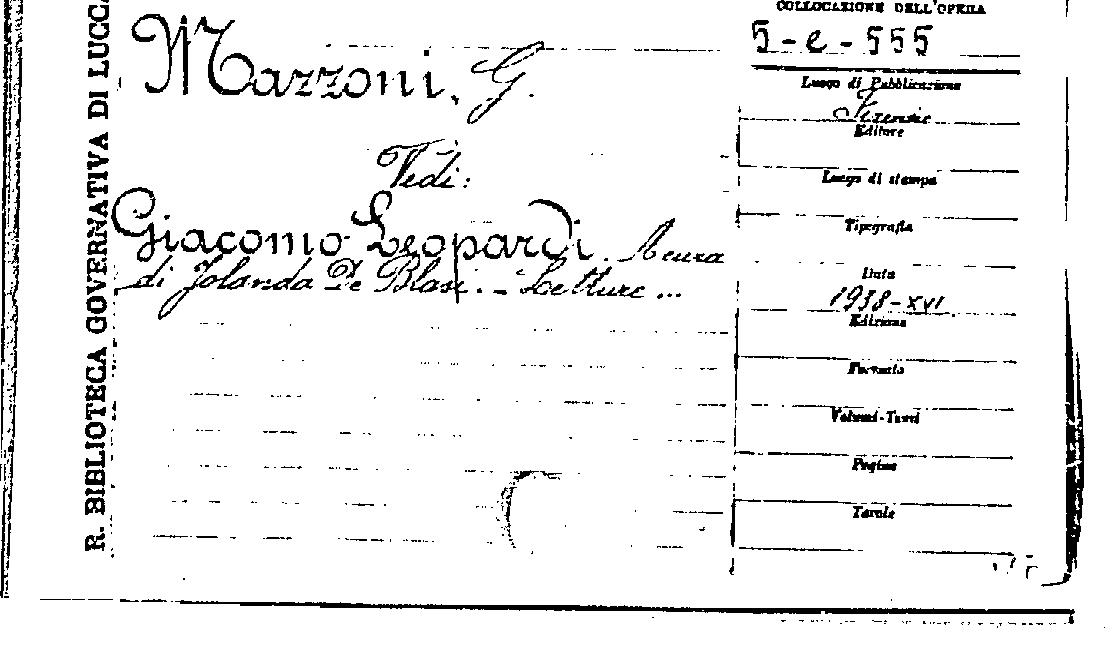 R. BIBLIOTECA GOVERNATIVA DI LUCCA
Mazzoni, G.
Vedi:
Giacomo Leopardi. A cura
di Jolanda De Blasi. - Letture ...
COLLOCAZIONE DELL'OPERA
5-e-555
Luogo di Pubblicazione
Firenze
Editore
Luogo di stampa
Tipografia
Data
1938-XVI
Edizione
Formato
Volumi-Tomi
Pagine
Tavole